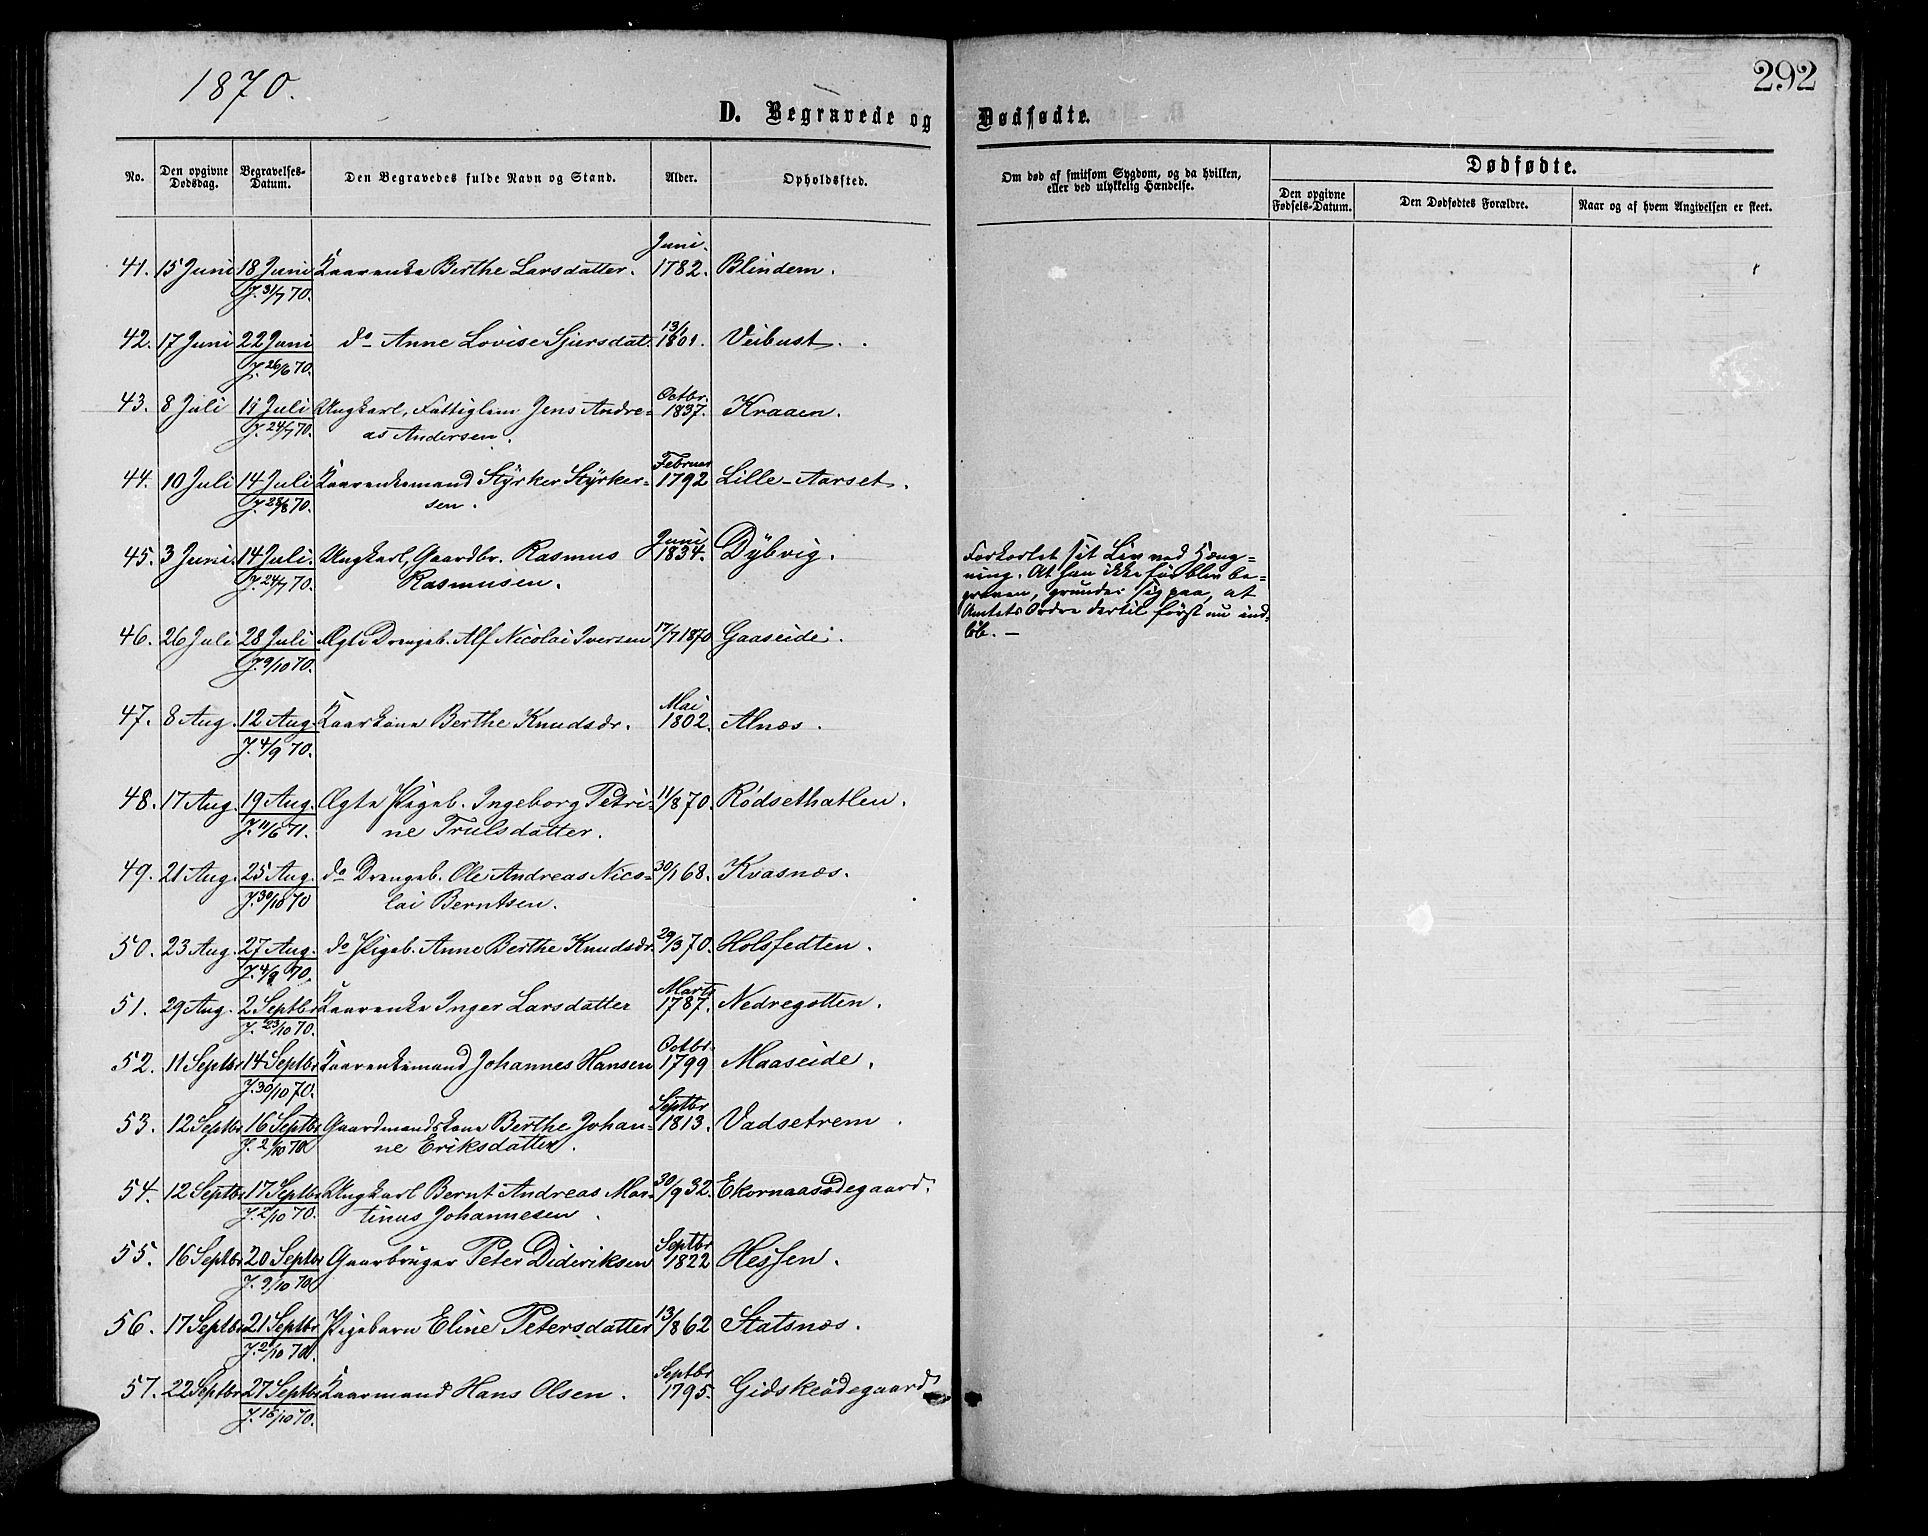 1870.
292
D. Begravede og Dødfødte.
No.
Den opgivne Dødsdag.
Begravelses-Datum.
Den Begravedes fulde Navn og Stand.
Alder.
Opholdssted.
Om død af smitsom Sygdom, og da hvilken,
eller ved ulykkelig Hændelse.
Dødfødte.
Den opgivne Fødsels-Datum.
Den Dødfødtes Forældre.
Naar og af hvem Angivelsen er skeet.
Juni.
41. 15 Juni 18 Juni Kaarenke Berthe Larsdatter. 1782. Blindem.
J. 31/7 70.
42. 17 Juni 22 Juni do Anne Lovise Sjursdat. 13/1 1801. Veibust.
J. 26/6 70.
43. 8 Juli 11 Juli Ungkarl, Fattiglem Jens Andre- Octbr. 1837. Kraaen.
J. 24/7 70. as Andersen.
44. 10 Juli 14 Juli Kaarenkemand Styrker Styrker- Februar 1792 Lille-Aarset.
J. 28/8 70. sen.
45. 3 Juni. 14 Juli. Ungkarl, Gaardbr. Rasmus Juni 1834. Dybvig.
J. 24/7 70. Rasmusen.
Forkortet sit Liv ved Hæng-
ning. At han ikke før blev be-
graven, grunder sig paa, at
Amtets Ordre dertil først nu ind-
løb. —
46. 26 Juli 28 Juli Ægte Drengeb. Alf Nicolai Iversen 17/7 1870 Gaaseide.
J. 9/10 70.
47. 8 Aug. 12 Aug. Kaarkone Berthe Knudsdr. Mai 1802. Alnæs.
J. 4/9 70.
48. 17 Aug. 19 Aug. Ægte Pigeb. Ingeborg Petri- 11/8 70. Rødsethatlen.
J. 11/6 71. ne Trulsdatter.
49. 21 Aug. 25 Aug. do Drengeb. Ole Andreas Nico- 30/1 68. Kvasnæs.
J. 30/10 70 lai Berntsen.
50. 23 Aug. 27 Aug. do Pigeb. Anne Berthe Knudsdr. 29/3 70. Holsfedten.
J. 4/9 70.
51. 29 Aug. 2 Septbr Kaarenke Inger Larsdatter Marts 1787. Nedregotten.
J. 23/10 70.
52. 11 Septbr 14 Septbr Kaarenkemand Johannes Hansen Octbr. 1799 Maaseide.
J. 30/10 70.
53. 12 Septbr 16 Septbr Gaardmandskone Berthe Johan- Septbr 1813. Vadsetrem.
J. 2/10 70 ne Eriksdatter.
54. 12 Septbr 17 Septbr Ungkarl Bernt Andreas Mar- 30/9 32. Ekornaasødegaard.
J. 2/10 70. tinus Johannesen.
55. 16 Septbr 20 Septbr Gaarbruger Peter Dideriksen Septbr 1822 Hessen.
J. 9/10 70
56. 17 Septbr 21 Septbr Pigebarn Eline Petersdatter 13/8 62 Statsnæs.
J. 2/10 70.
57. 22 Septbr 27 Septbr Kaarmand Hans Olsen. Septbr 1795. Gidskeødegaard
J. 16/10 70.